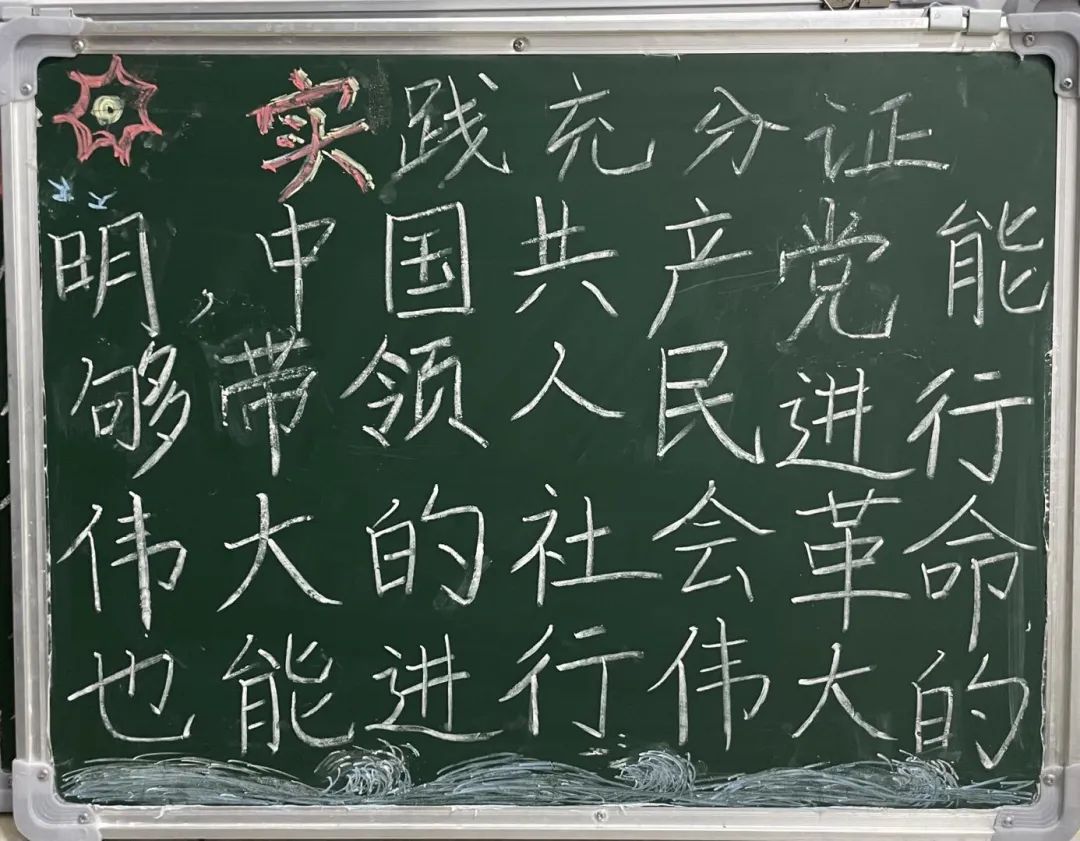 实践充分证
明,中国共产党能
够带领人民进行
伟大的社会革命
也能进行伟大的